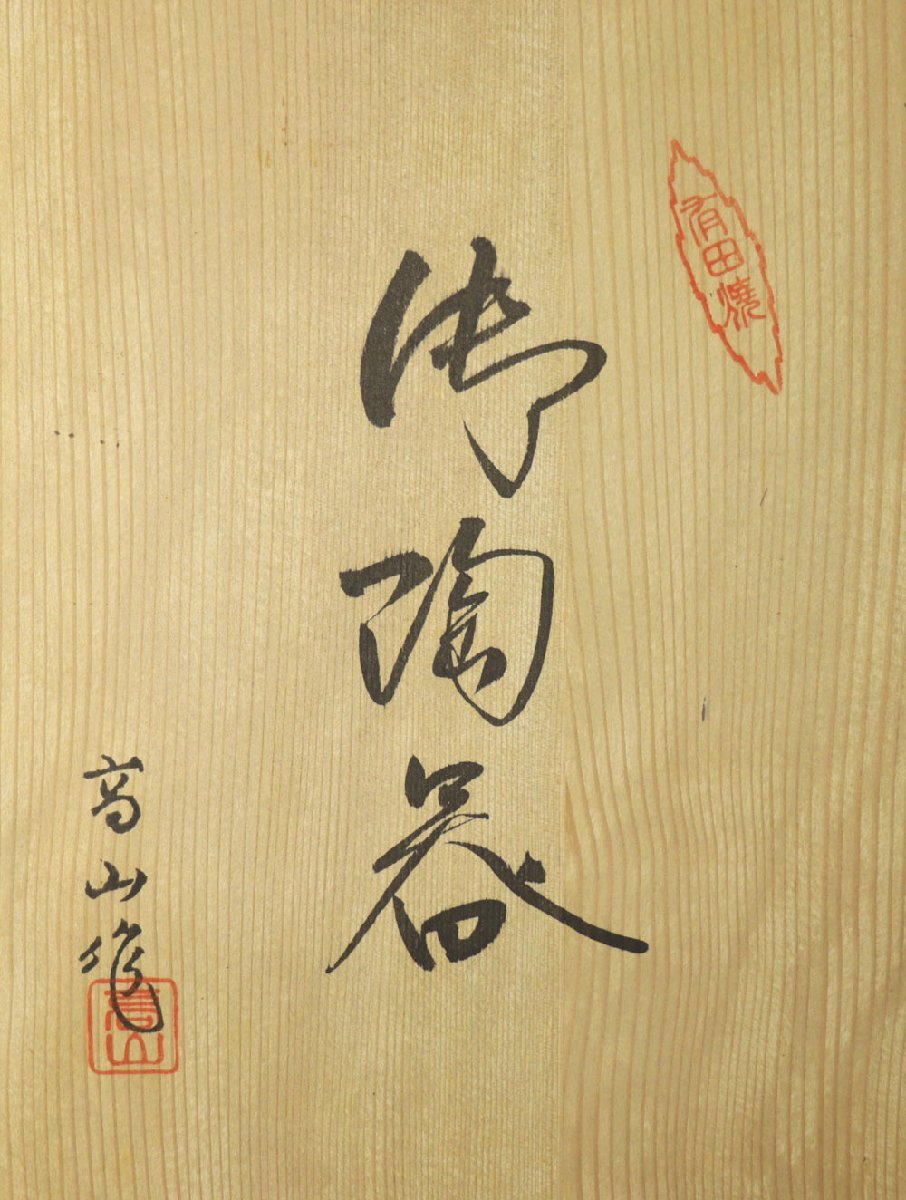 有田焼
御陶器
高山作
高山